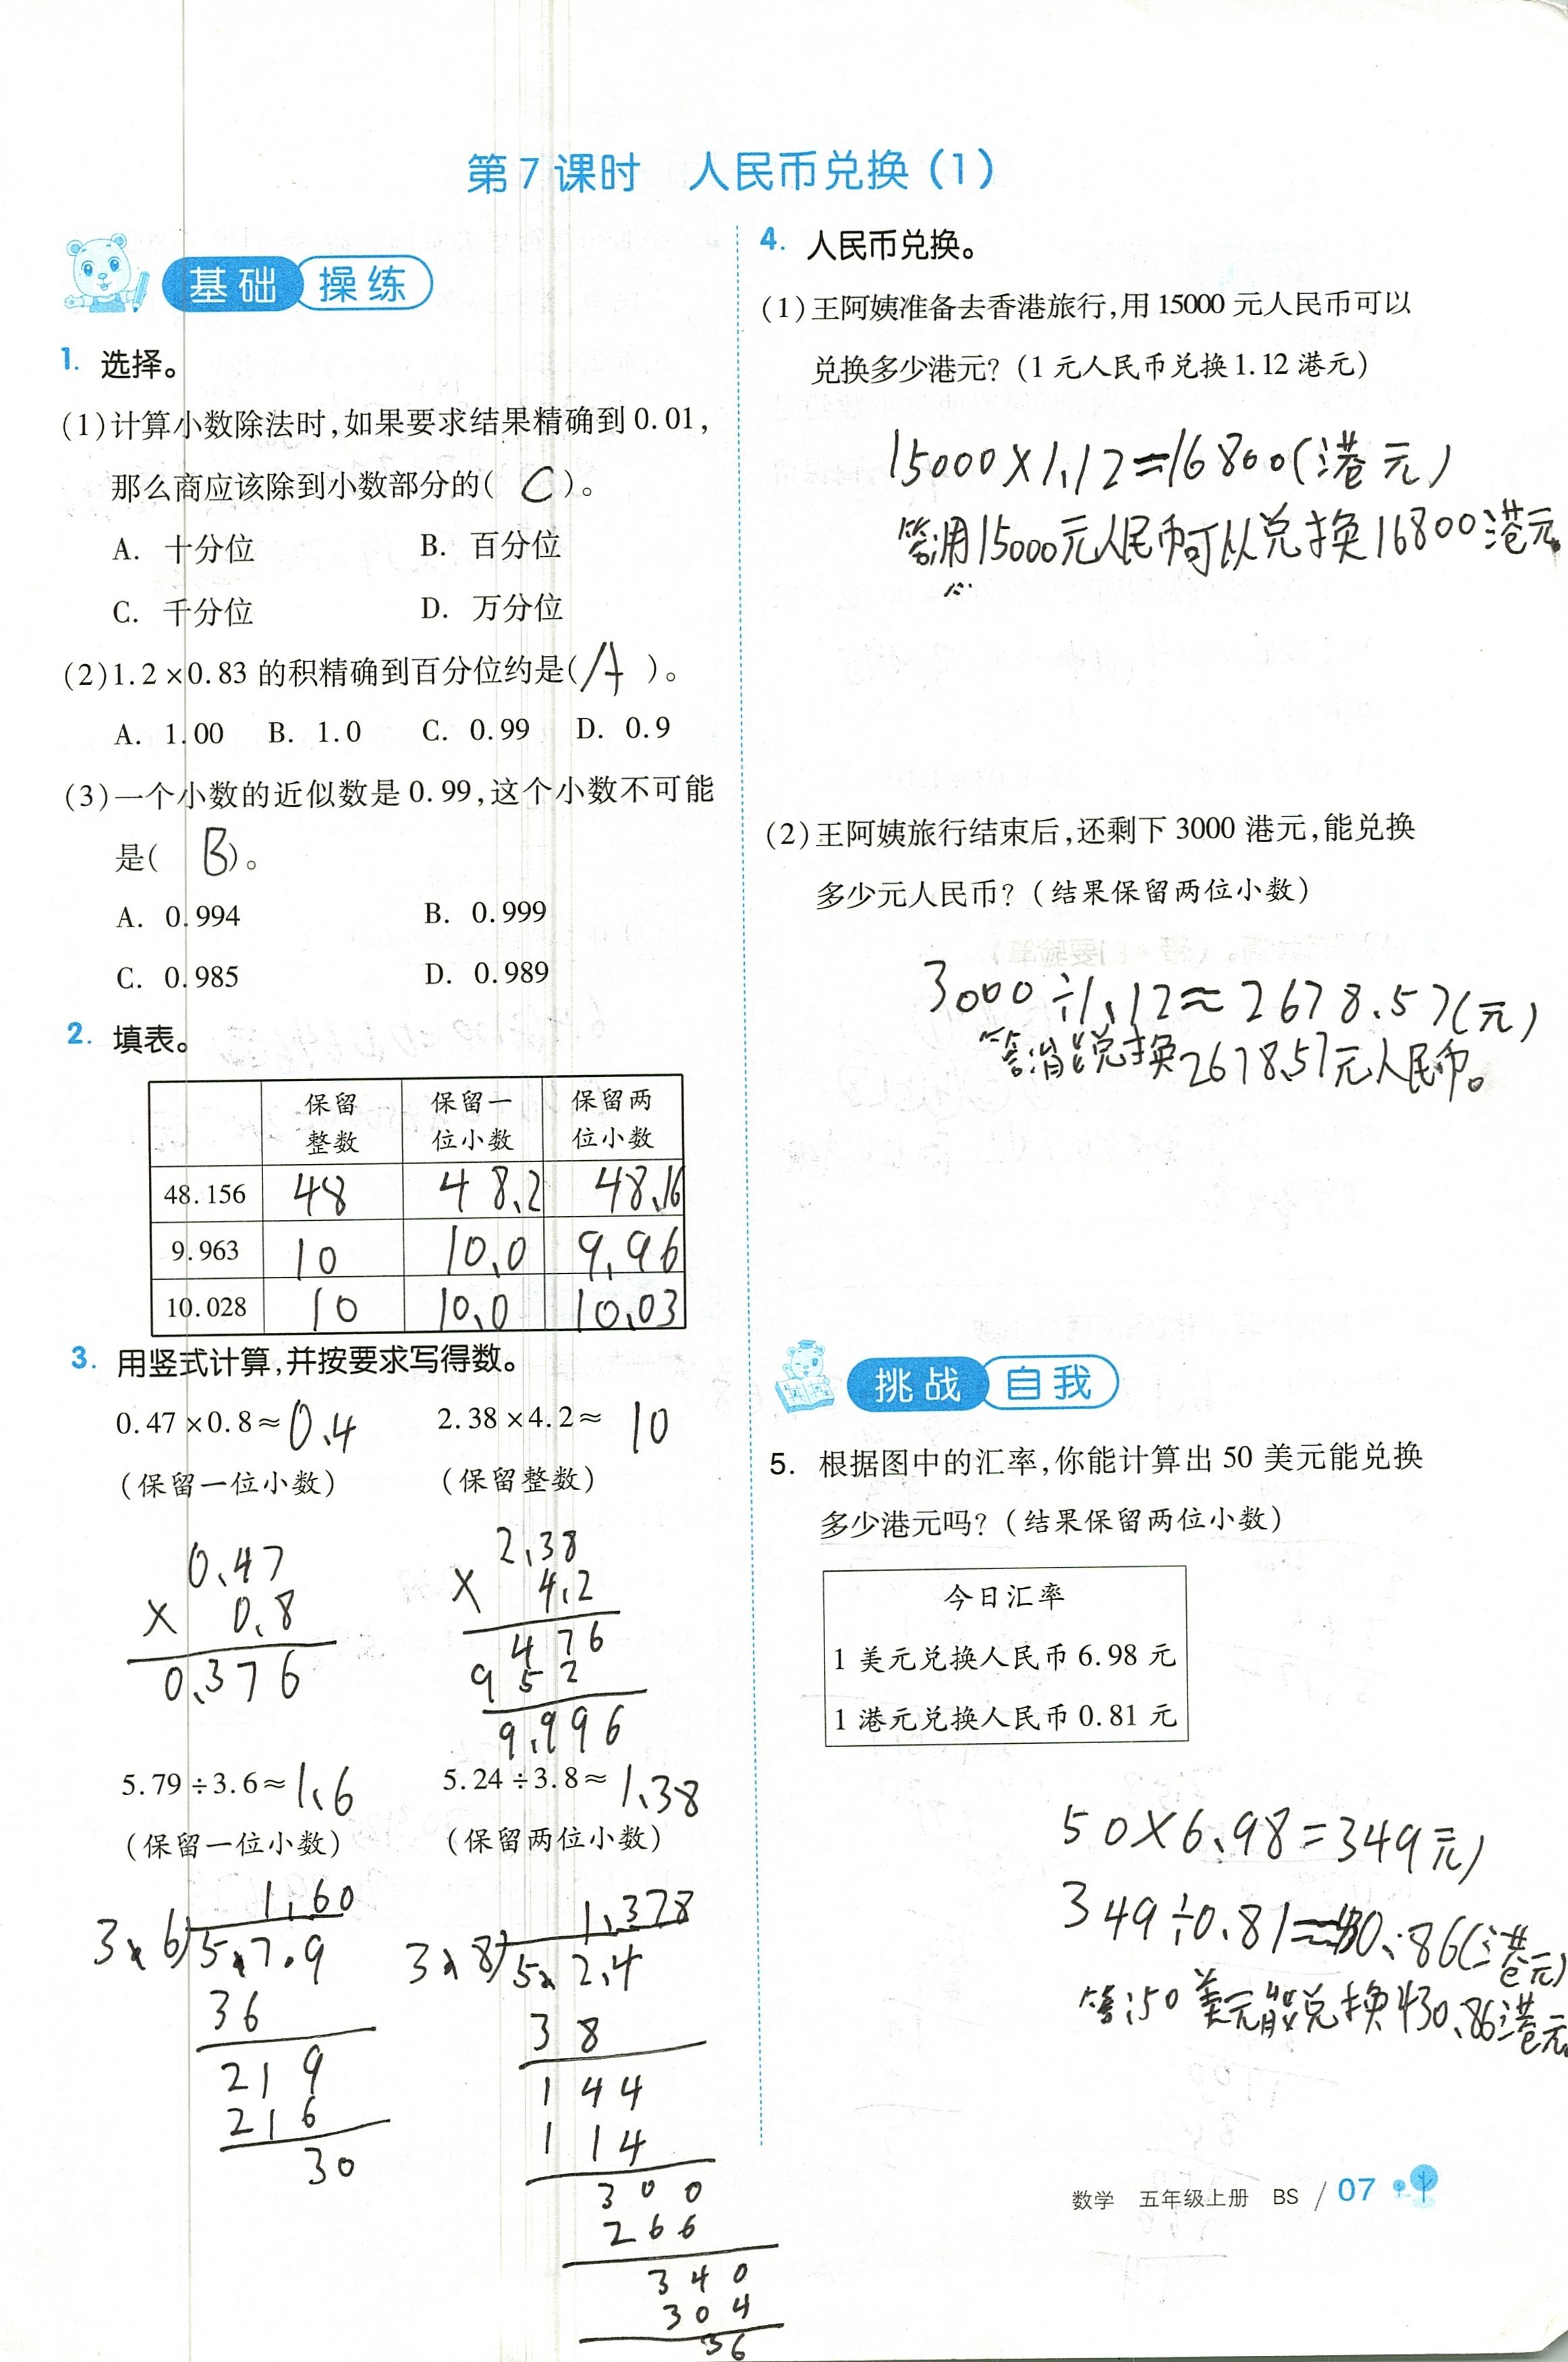 第7课时 人民币兑换(1)
基础 操练
1. 选择。
(1)计算小数除法时,如果要求结果精确到0.01,
那么商应该除到小数部分的( C )。
A. 十分位 B. 百分位
C. 千分位 D. 万分位
(2)1.2×0.83的积精确到百分位约是( A )。
A. 1.00 B. 1.0 C. 0.99 D. 0.9
(3)一个小数的近似数是0.99,这个小数不可能
是( B )。
A. 0.994 B. 0.999
C. 0.985 D. 0.989
2. 填表。
保留整数 保留一位小数 保留两位小数
48.156 48 48.2 48.16
9.963 10 10.0 9.96
10.028 10 10.0 10.03
3. 用竖式计算,并按要求写得数。
0.47×0.8≈0.4 2.38×4.2≈10
(保留一位小数) (保留整数)
0.47 2.38
× 0.8 × 4.2
0.376 476
952
9.996
5.79÷3.6≈1.6 5.24÷3.8≈1.38
(保留一位小数) (保留两位小数)
1.60 1.378
3.6 5.7.9 3.8 5.2.4
36 38
219 144
216 114
30 300
266
340
304
36
4. 人民币兑换。
(1)王阿姨准备去香港旅行,用15000元人民币可以
兑换多少港元?(1元人民币兑换1.12港元)
15000×1.12=16800(港元)
答:用15000元人民币可以兑换16800港元。
(2)王阿姨旅行结束后,还剩下3000港元,能兑换
多少元人民币?(结果保留两位小数)
3000÷1.12≈2678.57(元)
答:能兑换2678.57元人民币。
挑战 自我
5. 根据图中的汇率,你能计算出50美元能兑换
多少港元吗?(结果保留两位小数)
今日汇率
1美元兑换人民币6.98元
1港元兑换人民币0.81元
50×6.98=349元)
349÷0.81≈430.86(港元)
答:50美元能兑换430.86港元。
数学 五年级上册 BS / 07